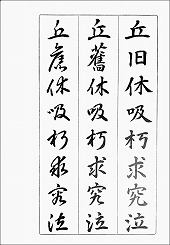 丘旧休吸朽求究泣
丘舊休吸朽求究泣
丘舊休吸朽求究泣